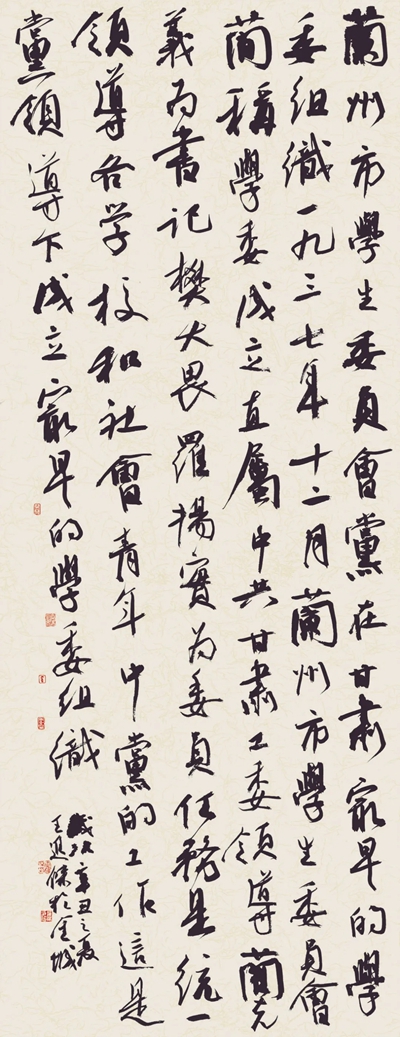 蘭州市學生委員會黨在甘肅最早的學
委組織一九三七年十二月蘭州市學生委員會
簡稱學委成立直屬中共甘肅工委領導蘭克
義為書記樊大畏羅揚實为委員任務是統一
領導各学校和社會青年中黨的工作這是
黨領導下成立最早的學委組織
歲次辛丑之夏
王
於金城